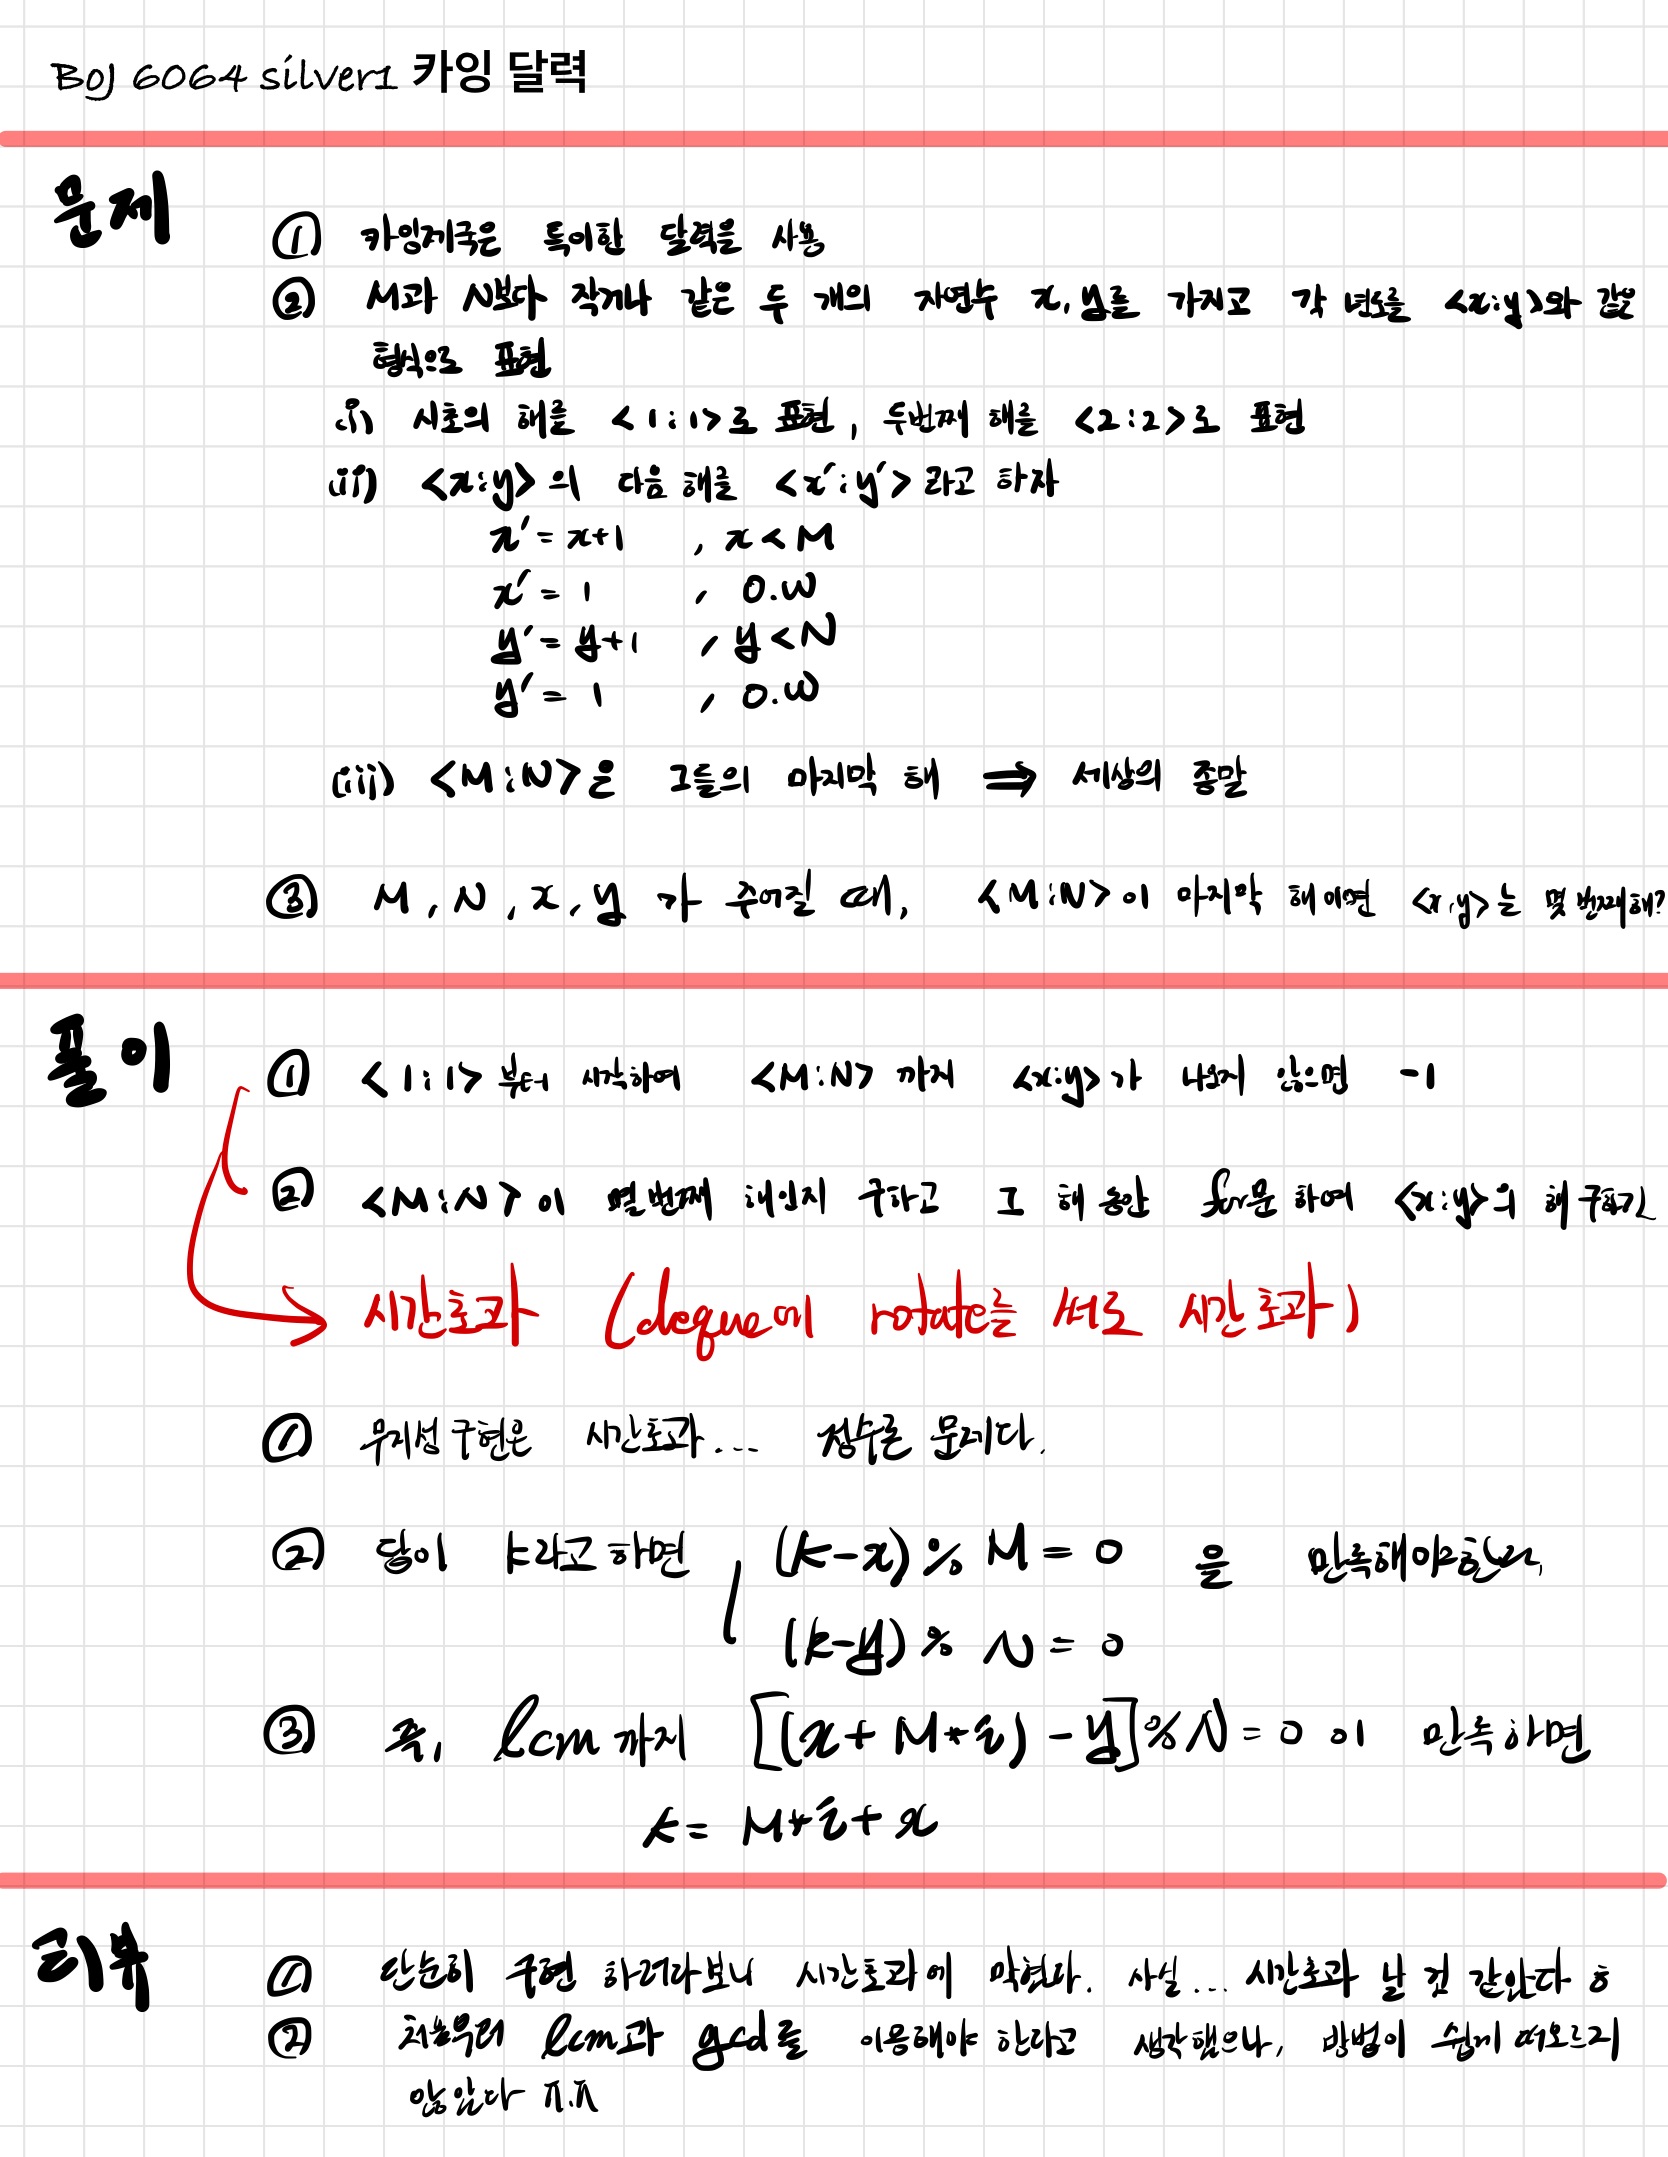 BOJ 6064 silver1 카잉 달력
문제
① 카잉제국은 특이한 달력을 사용
② M과 N보다 작거나 같은 두 개의 자연수 x, y를 가지고 각 년도를 <x:y>와 같은
형식으로 표현
(i) 시초의 해를 <1:1>로 표현, 두번째 해를 <2:2>로 표현
(ii) <x:y>의 다음 해를 <x':y'>라고 하자
x' = x+1 , x<M
x' = 1 , O.W
y' = y+1 , y<N
y' = 1 , O.W
(iii) <M:N>은 그들의 마지막 해 ⇒ 세상의 종말
③ M, N, x, y 가 주어질 때, <M:N>이 마지막 해이면 <x,y>는 몇 번째 해?
풀이
① <1:1>부터 시작하여 <M:N>까지 <x:y>가 나오지 않으면 -1
② <M:N>이 몇 번째 해인지 구하고 그 해 동안 for문 하여 <x:y>의 해 구하기
시간초과 (deque에 rotate를 써도 시간초과)
① 무지성 구현은 시간초과... 정수론 문제다.
② 답이 k라고 하면 (k-x) % M = 0 을 만족해야한다.
(k-y) % N = 0
③ 즉, lcm까지 [(x+M*i)-y]%N=0 이 만족하면
k = M*i+x
리뷰
① 단순히 구현 하려다보니 시간초과에 막혔다. 사실... 시간초과 날 것 같았다 ㅎ
② 처음부터 lcm과 gcd를 이용해야 한다고 생각했으나, 방법이 쉽게 떠오르지
않았다 ㅠ.ㅠ